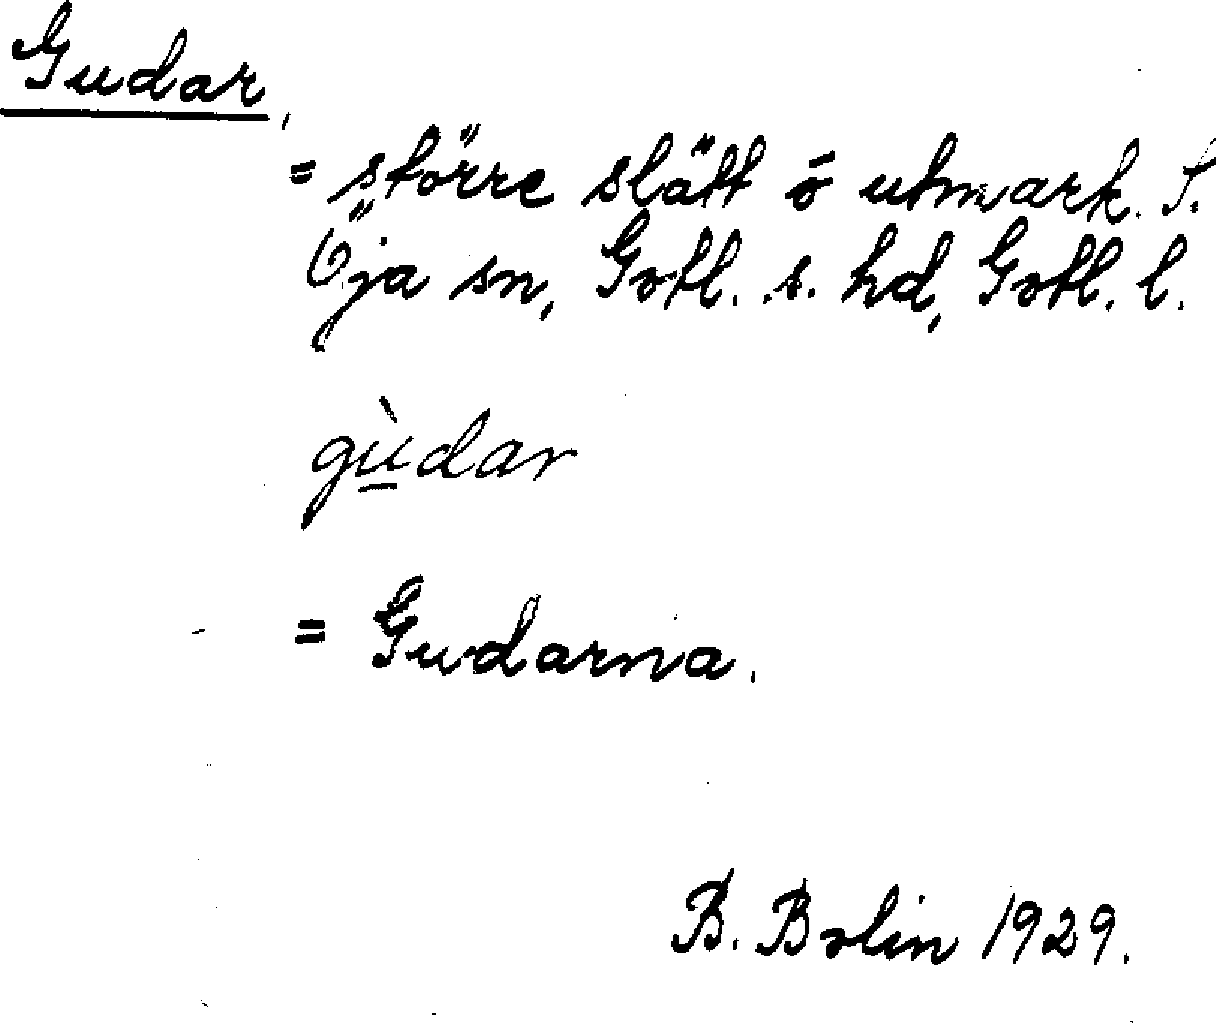 Gudar,
= större slätt ō utmark. S.
Öja sn, Gotl. s. hd, Gotl. l.
gùdar
= Gudarna.
B. Bolin 1929.